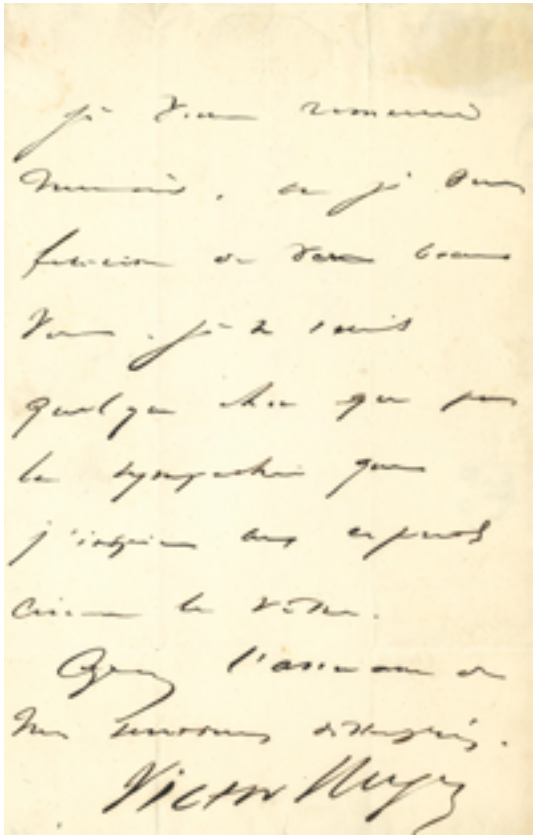 je vous remercie
Monsieur, et je vous
félicite de vos beaux
vers. je ne suis
quelque chose que par
la sympathie que
j'inspire aux esprits
comme le vôtre.
l'assurance de
mes sentiments distingués.
Victor Hugo